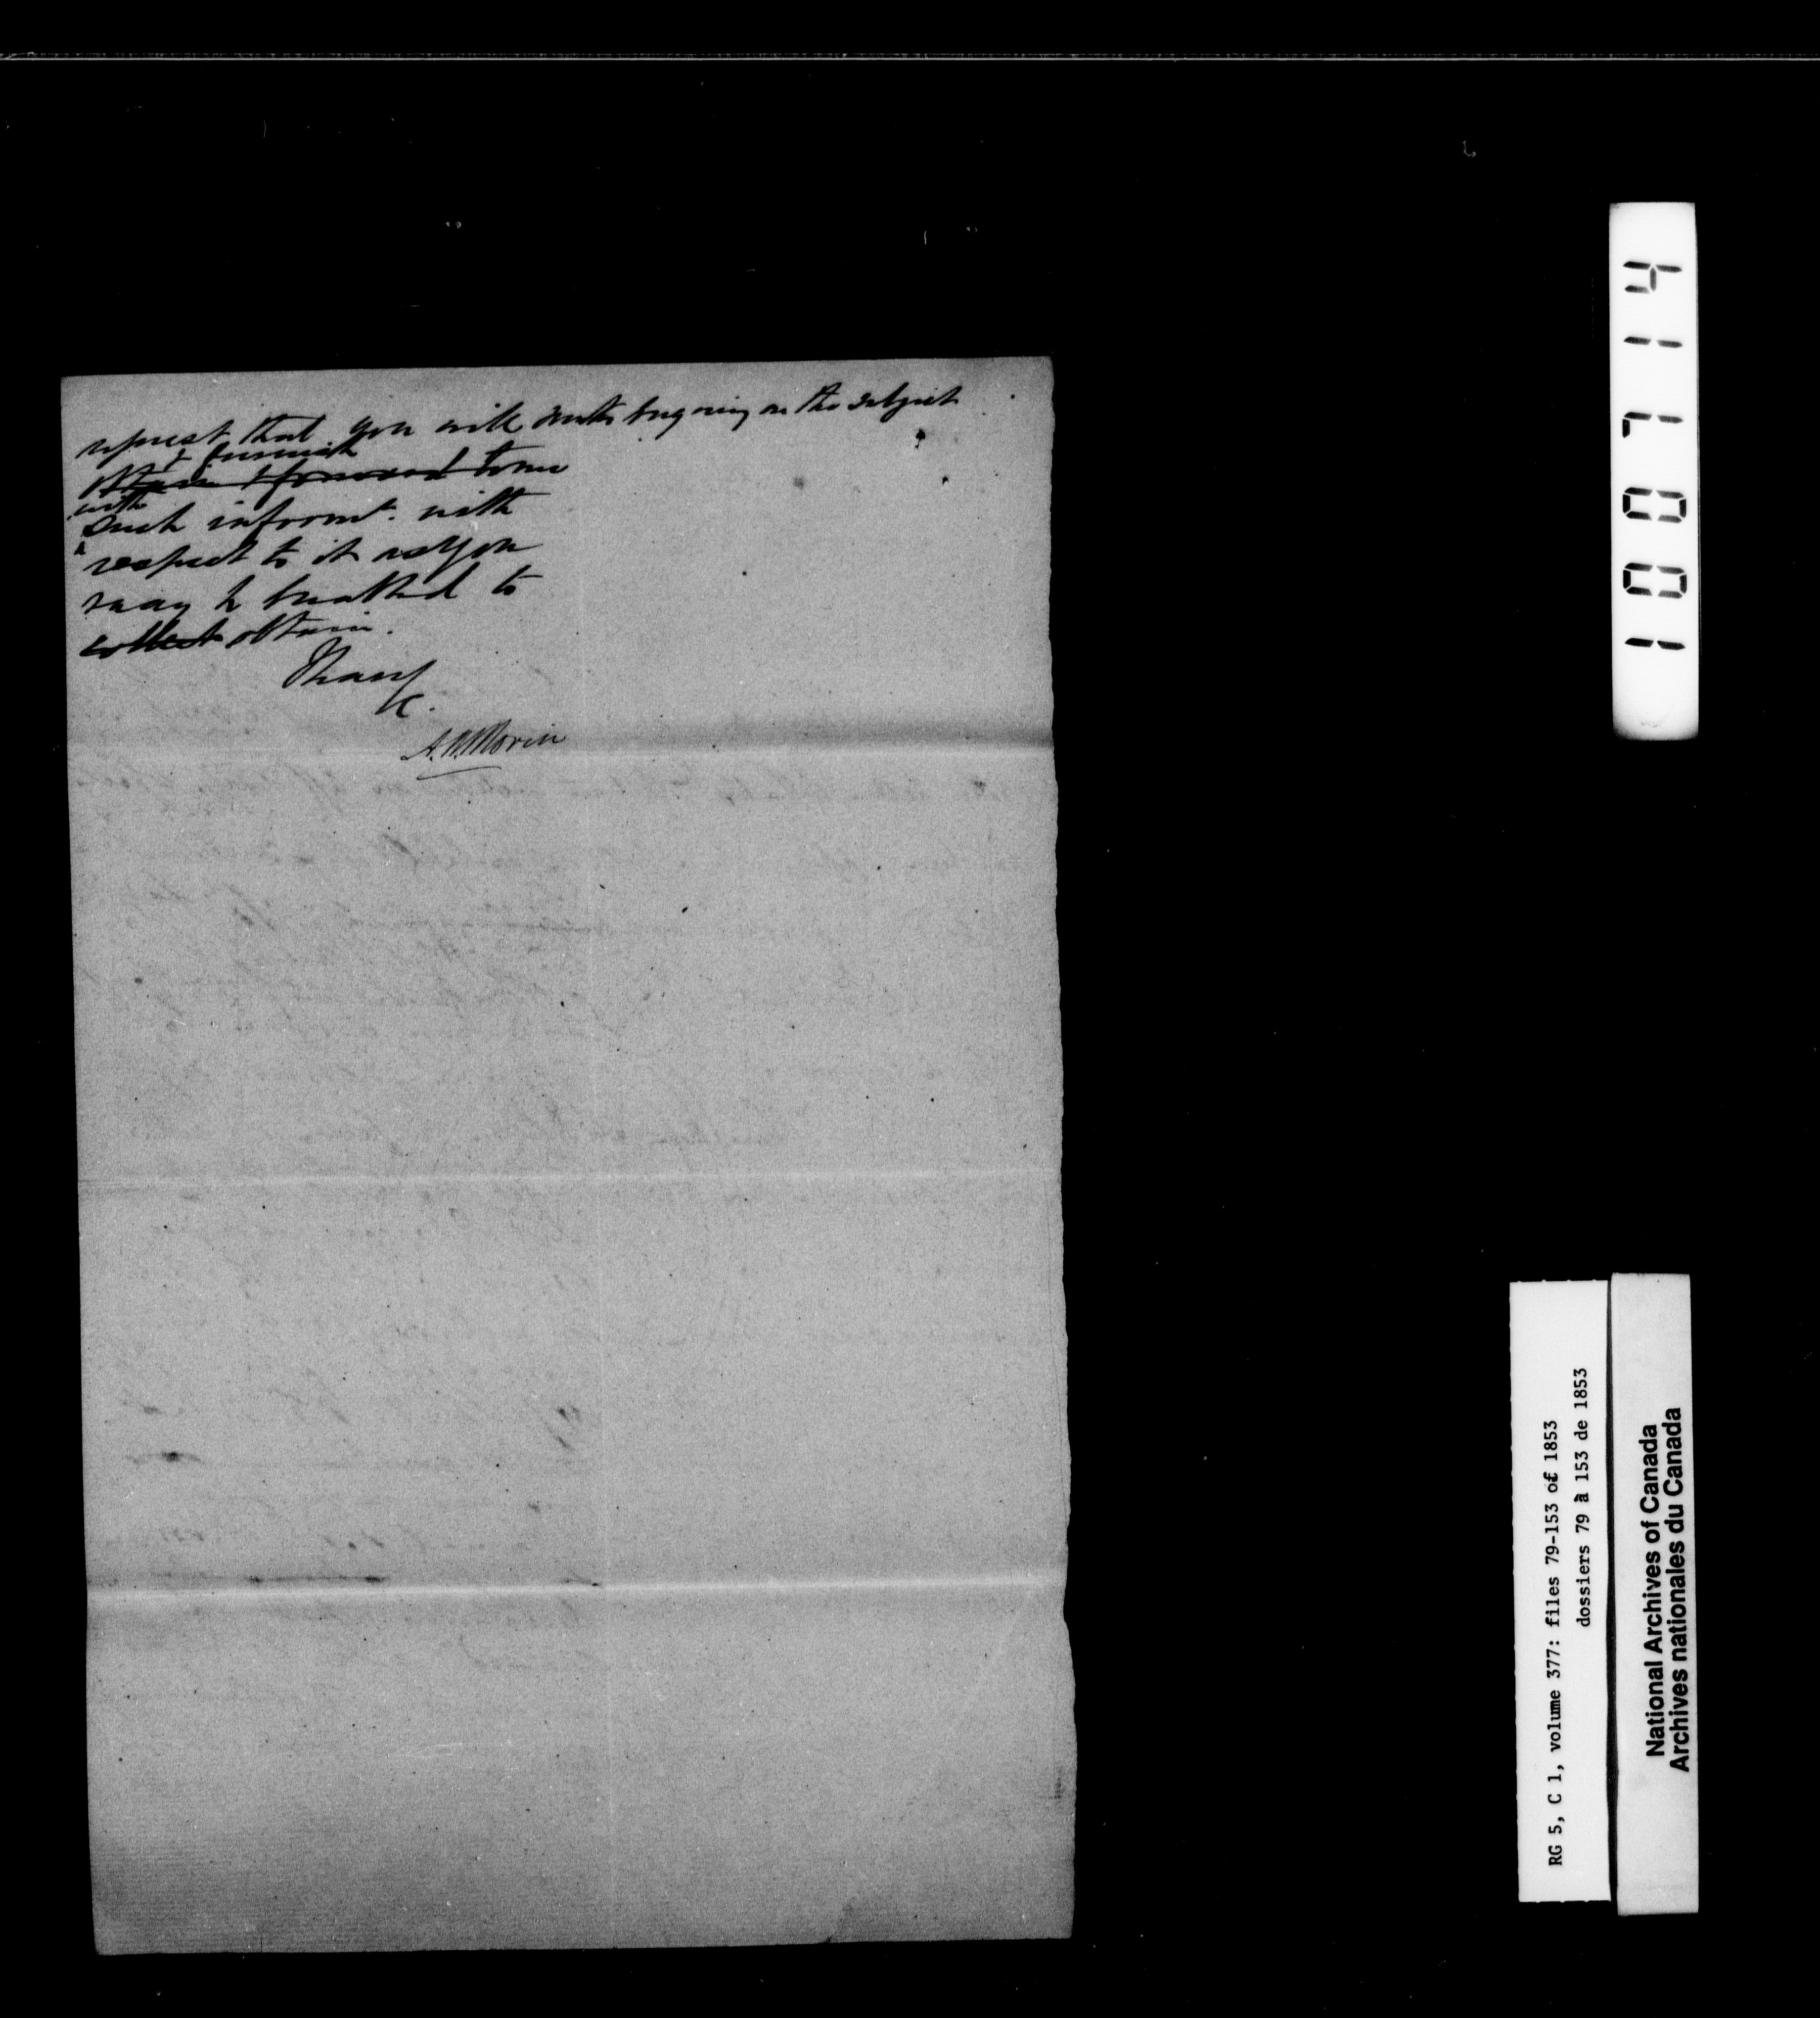 request that you will make enquiry on the subject
& furnish
obtain & forward to me
with
such informt. with
respect to it as you
may be enabled to
collect obtain.
I have
&c.
A.N. Morin
1007714
RG 5, C 1, volume 377: files 79-153 of 1853
dossiers 79 à 153 de 1853
National Archives of Canada
Archives nationales du Canada